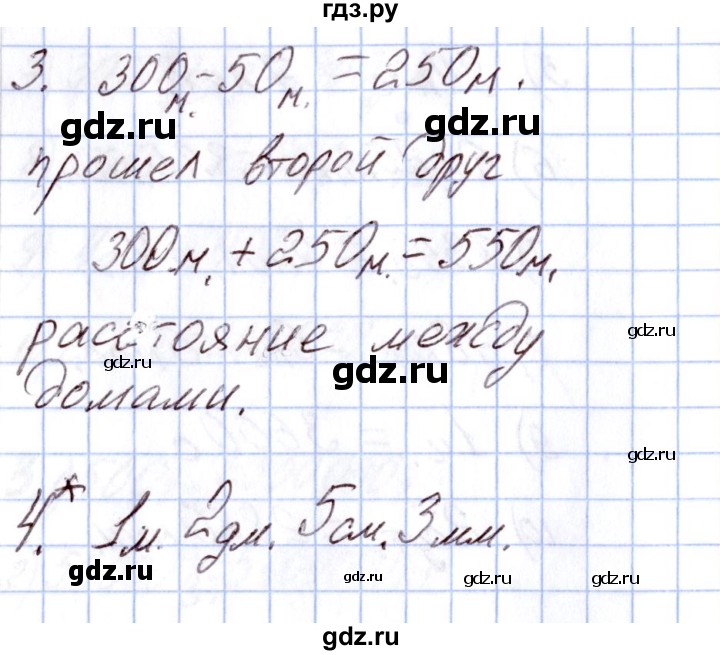 гдз.ру
3. 300м. - 50м. = 250м.
gdz.ru gdz.ru
прошел второй друг
300м. + 250м. = 550м.
расстояние между
gdz.ru gdz.ru gdz.ru
домами.
gdz.ru
4.* 1м. 2дм. 5см. 3мм.
gdz.ru gdz.ru gdz.ru gdz.ru
gdz.ru